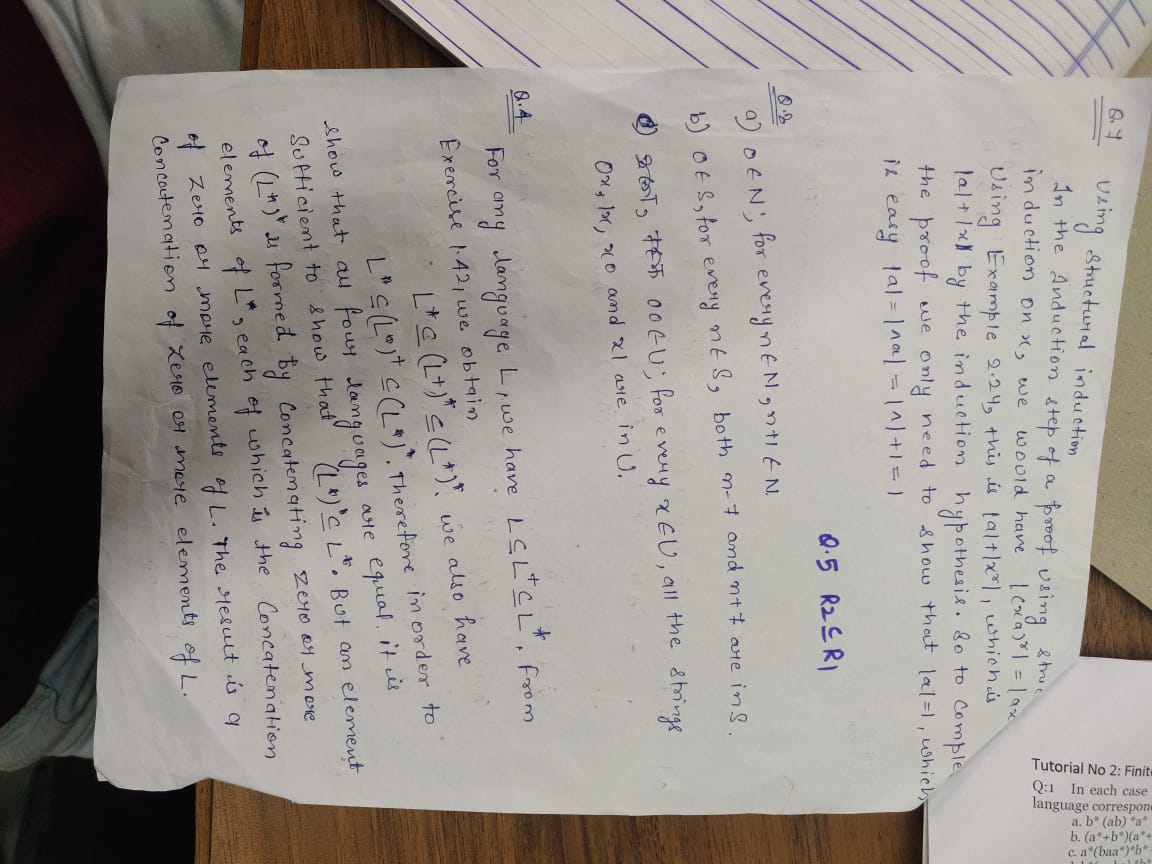 Q.7
Using structural induction
In the Induction step of a proof using struc
induction on x, we would have |(xa)ʳ| = |ax
Using Example 2.24, this is |a|+|xʳ|, which is
|a|+|x| by the induction hypothesis. So to comple
the proof we only need to show that |a|=1, which
is easy |a|=|Λa|=|Λ|+1=1
Q.5 R2⊆R1
Q.3
a) 0∈N; for every n∈N, n+1∈N.
b) 0∈S, for every n∈S, both n-7 and n+7 are in S.
d) 00∈U; for every x∈U, all the strings
0x, 1x, x0 and x1 are in U.
Q.4
For any language L, we have L⊆L⁺⊆L*. From
Exercise 1.42, we obtain
L*⊆(L⁺)*⊆(L*)*. we also have
L*⊆(L*)⁺⊆(L*)*. Therefore in order to
show that all four languages are equal, it is
Sufficient to show that (L*)*⊆L*. But an element
of (L*)* is formed by Concatenating zero or more
elements of L*, each of which is the Concatenation
of zero or more elements of L. The result is a
Concatenation of zero or more elements of L.
Tutorial No 2: Finit
Q:1 In each case
language correspon
a. b* (ab) *a*
b. (a*+b*)(a*+
c. a*(baa*)*b*